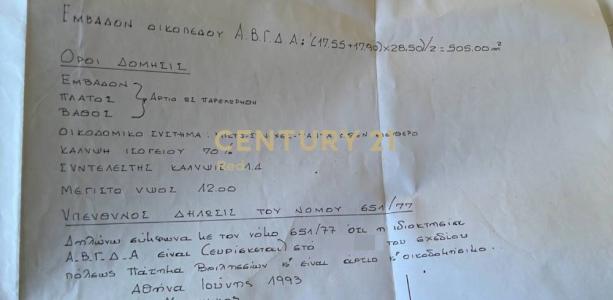 ΕΜΒΑΔΟΝ ΟΙΚΟΠΕΔΟΥ Α.Β.Γ.Δ Α: (17.55+17.90)×28.50)/2 = 505.00 m²
ΟΡΟΙ ΔΟΜΗΣΙΣ
ΕΜΒΑΔΟΝ
ΠΛΑΤΟΣ } ΑΡΤΙΟ ΩΣ ΠΑΡΕΚΛΗΣΗ
ΒΑΘΟΣ
ΟΙΚΟΔΟΜΙΚΟ ΣΥΣΤΗΜΑ :
CENTURY 21
ΚΑΛΥΨΗ ΙΣΟΓΕΙΟΥ 70%
Red
ΣΥΝΤΕΛΕΣΤΗΣ ΚΑΛΥΨΙΣ 1.4
ΜΕΓΙΣΤΟ ΥΨΟΣ 12.00
ΥΠΕΥΘΥΝΟΣ ΔΗΛΩΣΙΣ ΤΟΥ ΝΟΜΟΥ 651/77
Δηλώνω σύμφωνα με τον νόμο 651/77 ότι η ιδιοκτησία
Α.Β.Γ.Δ-Α είναι (ευρίσκεται) στό του σχεδίου
πόλεως Πάτημα Βριλησσίων κ' είναι άρτιο κ' οικοδομήσιμο.
Αθήνα Ιούνης 1993